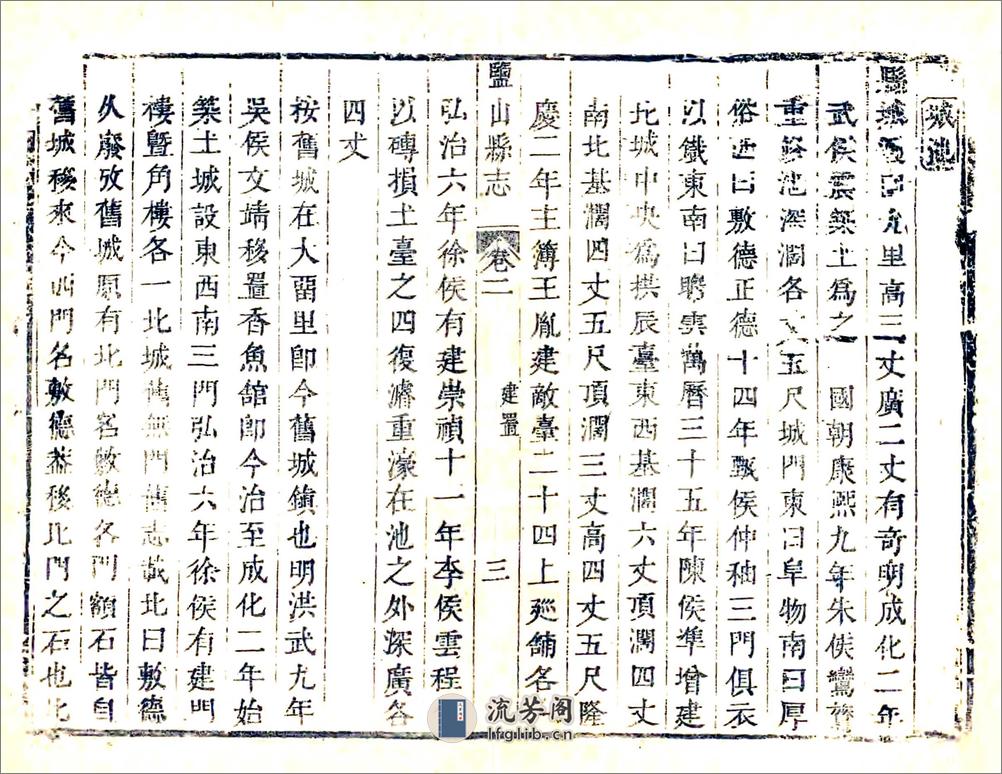 城池
縣城週圍九里高三丈廣二丈有奇明成化二年
武侯震築土為之　國朝康熙九年朱侯鸞鷟
重修池深濶各丈五尺城門東曰阜物南曰厚
俗西曰敷德正德十四年甄侯仲秞三門俱衣
以鐵東南曰聘雲萬曆三十五年陳侯準增建
北城中央爲拱辰臺東西基濶六丈頂濶四丈
南北基濶四丈五尺頂濶三丈高四丈五尺隆
慶二年主簿王胤建敵臺二十四上廵舖各一
鹽山縣志　卷二　建置　三
弘治六年徐侯有建崇禎十一年李侯雲程
以磚損土臺之四復濬重濠在池之外深廣各
四丈
按舊城在大畱里卽今舊城鎮也明洪武九年
吳侯文靖移置香魚舘卽今治至成化二年始
築土城設東西南三門弘治六年徐侯有建門
樓曁角樓各一北城舊無門舊志載北曰敷德
久廢攷舊城原有北門名敷德各門額石皆自
舊城移來今西門名敷德葢移北門之石也北
流芳阁
lfglib.cn